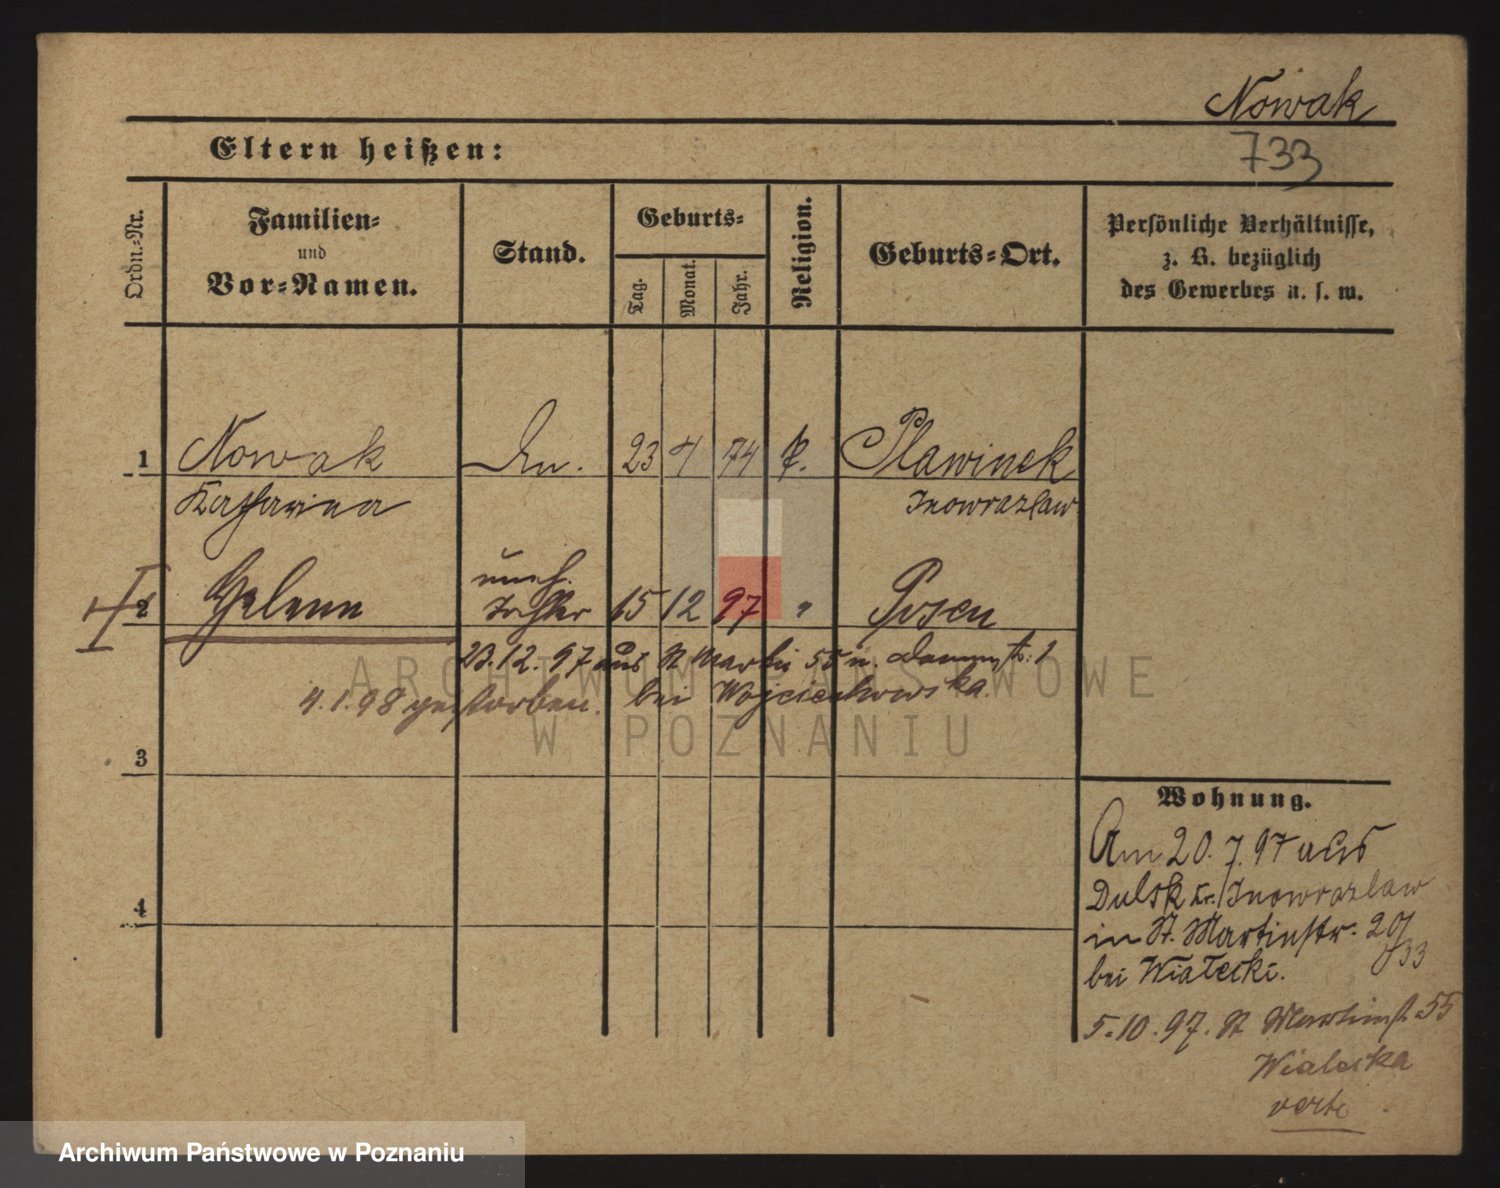 Nowak
733
Eltern heißen:
Ordn.-Nr.
Familien- und Vor-Namen.
Stand.
Geburts-
Tag.
Monat.
Jahr.
Religion.
Geburts-Ort.
Persönliche Verhältnisse,
z. B. bezüglich
des Gewerbes u. s. w.
1 Nowak 23 4 74 k. Slawinek
Katharina Inowrazlaw
2 Helena uneh. Tochter 15 12 97 " Posen
23.12.97 aus St Martin 55 n. Dammstr. 1
4.1.98 gestorben. bei Wojciechowska.
3
4
Wohnung.
Am 20.7.97 aus
Dulsk Kr. Inowrazlaw
in St. Martinstr. 20/33
bei Wiatecki.
5.10.97. St Martinst. 55
Wialecka
verte
ARCHIWUM PAŃSTWOWE
W POZNANIU
Archiwum Państwowe w Poznaniu